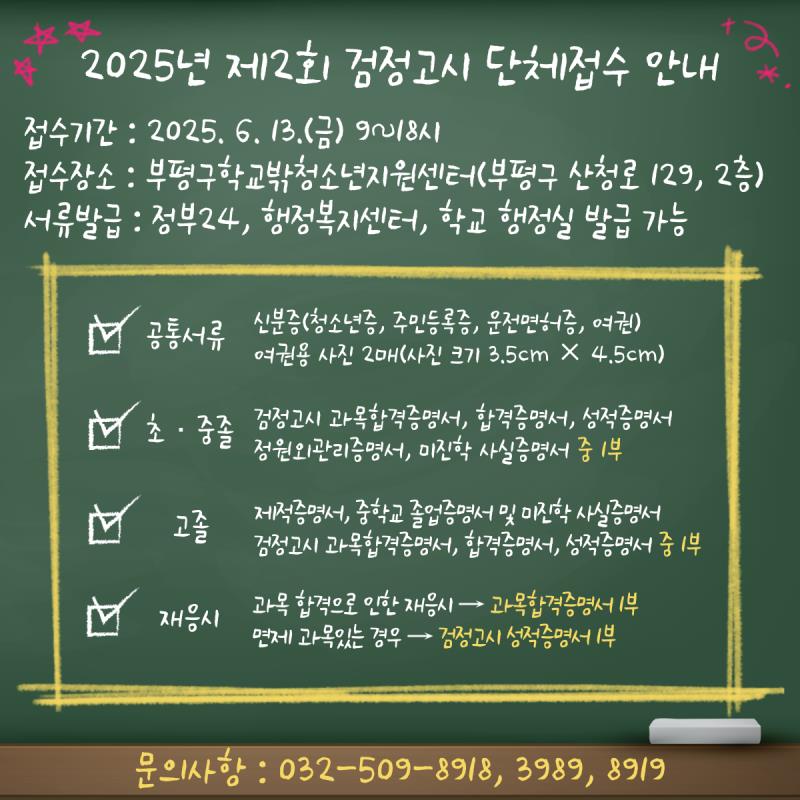 2025년 제2회 검정고시 단체접수 안내
접수기간 : 2025. 6. 13.(금) 9~18시
접수장소 : 부평구학교밖청소년지원센터(부평구 산청로 129, 2층)
서류발급 : 정부24, 행정복지센터, 학교 행정실 발급 가능
공통서류
신분증(청소년증, 주민등록증, 운전면허증, 여권)
여권용 사진 2매(사진 크기 3.5cm × 4.5cm)
초 · 중졸
검정고시 과목합격증명서, 합격증명서, 성적증명서
정원외관리증명서, 미진학 사실증명서 중 1부
고졸
제적증명서, 중학교 졸업증명서 및 미진학 사실증명서
검정고시 과목합격증명서, 합격증명서, 성적증명서 중 1부
재응시
과목 합격으로 인한 재응시 → 과목합격증명서 1부
면제 과목있는 경우 → 검정고시 성적증명서 1부
문의사항 : 032-509-8918, 3989, 8919